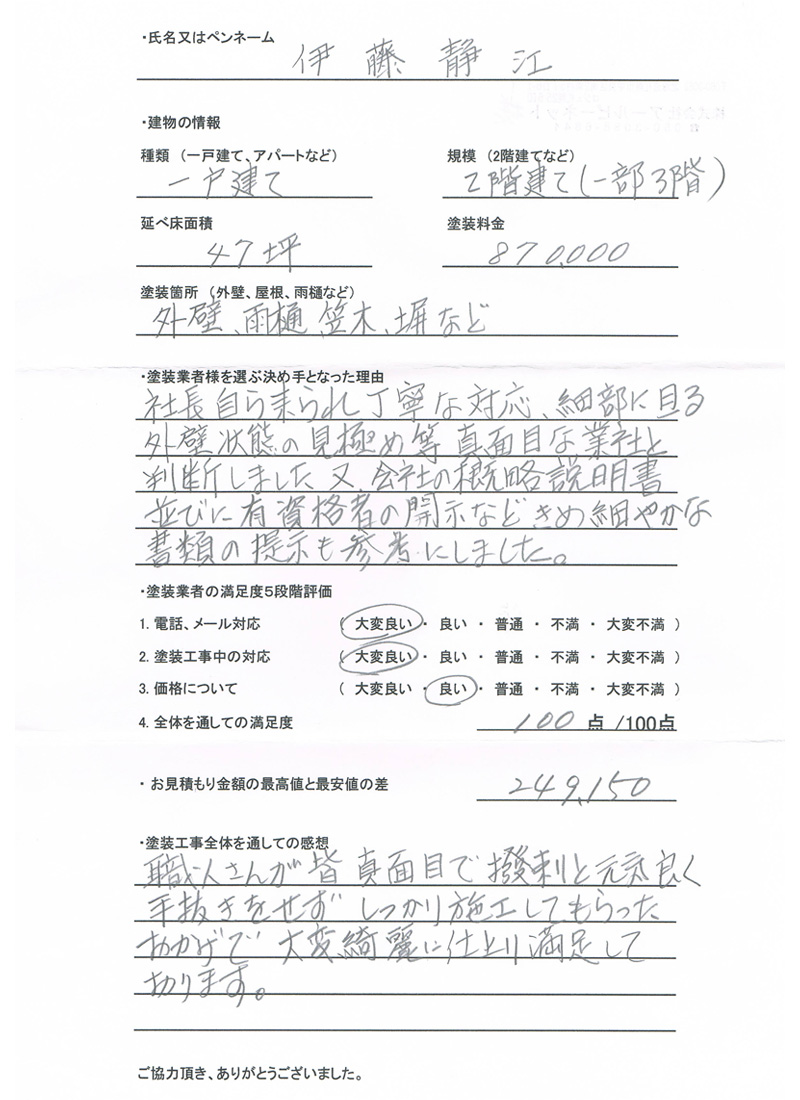 ・氏名又はペンネーム
伊藤静江
・建物の情報
種類（一戸建て、アパートなど） 規模（2階建てなど）
一戸建て 2階建て(一部3階)
延べ床面積 塗装料金
47坪 870,000
塗装箇所（外壁、屋根、雨樋など）
外壁、雨樋、笠木、塀など
・塗装業者様を選ぶ決め手となった理由
社長自ら来られ丁寧な対応、細部に亘る
外壁状態の見極め等真面目な業社と
判断しました又、会社の概略説明書
並びに有資格者の開示などきめ細やかな
書類の提示も参考にしました。
・塗装業者の満足度5段階評価
1. 電話、メール対応 （ 大変良い ・ 良い ・ 普通 ・ 不満 ・ 大変不満 ）
2. 塗装工事中の対応 （ 大変良い ・ 良い ・ 普通 ・ 不満 ・ 大変不満 ）
3. 価格について （ 大変良い ・ 良い ・ 普通 ・ 不満 ・ 大変不満 ）
4. 全体を通しての満足度 100 点 /100点
・お見積もり金額の最高値と最安値の差 249,150
・塗装工事全体を通しての感想
職人さんが皆真面目で撥剌と元気良く
手抜きをせずしっかり施工してもらった
おかげで大変綺麗に仕上り満足して
おります。
ご協力頂き、ありがとうございました。